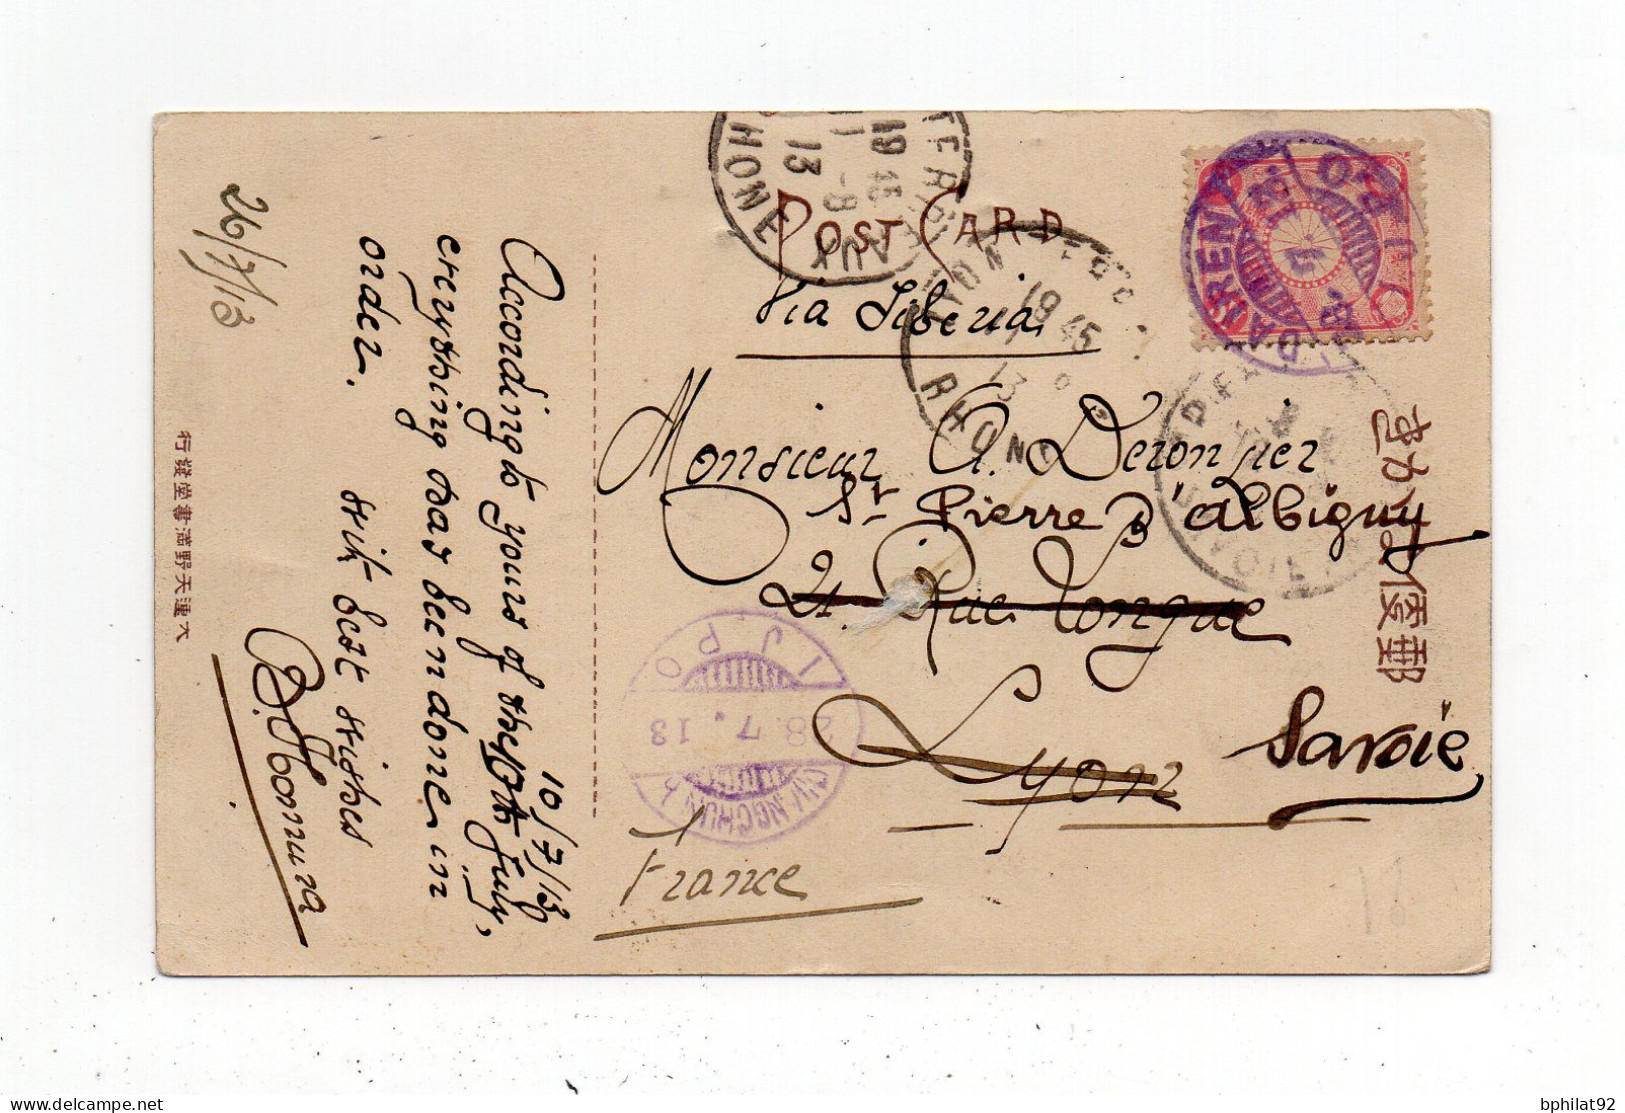 26/7/13
According to yours of the 10th July,
10/7/13
everything has been done in
order. With best wishes
B. Homura
大連天野満書堂發行
POST CARD
Via Siberia
Monsieur A. Deronzier
St Pierre D'albigny
21. Rue Longue
Lyon
Savoie
France
郵便はかき
DAIREN
I.J.P.O
28.7.13
CHANGCHUN
RHONE
19 45
13
RHONE
19 45
13
18
bphilat92